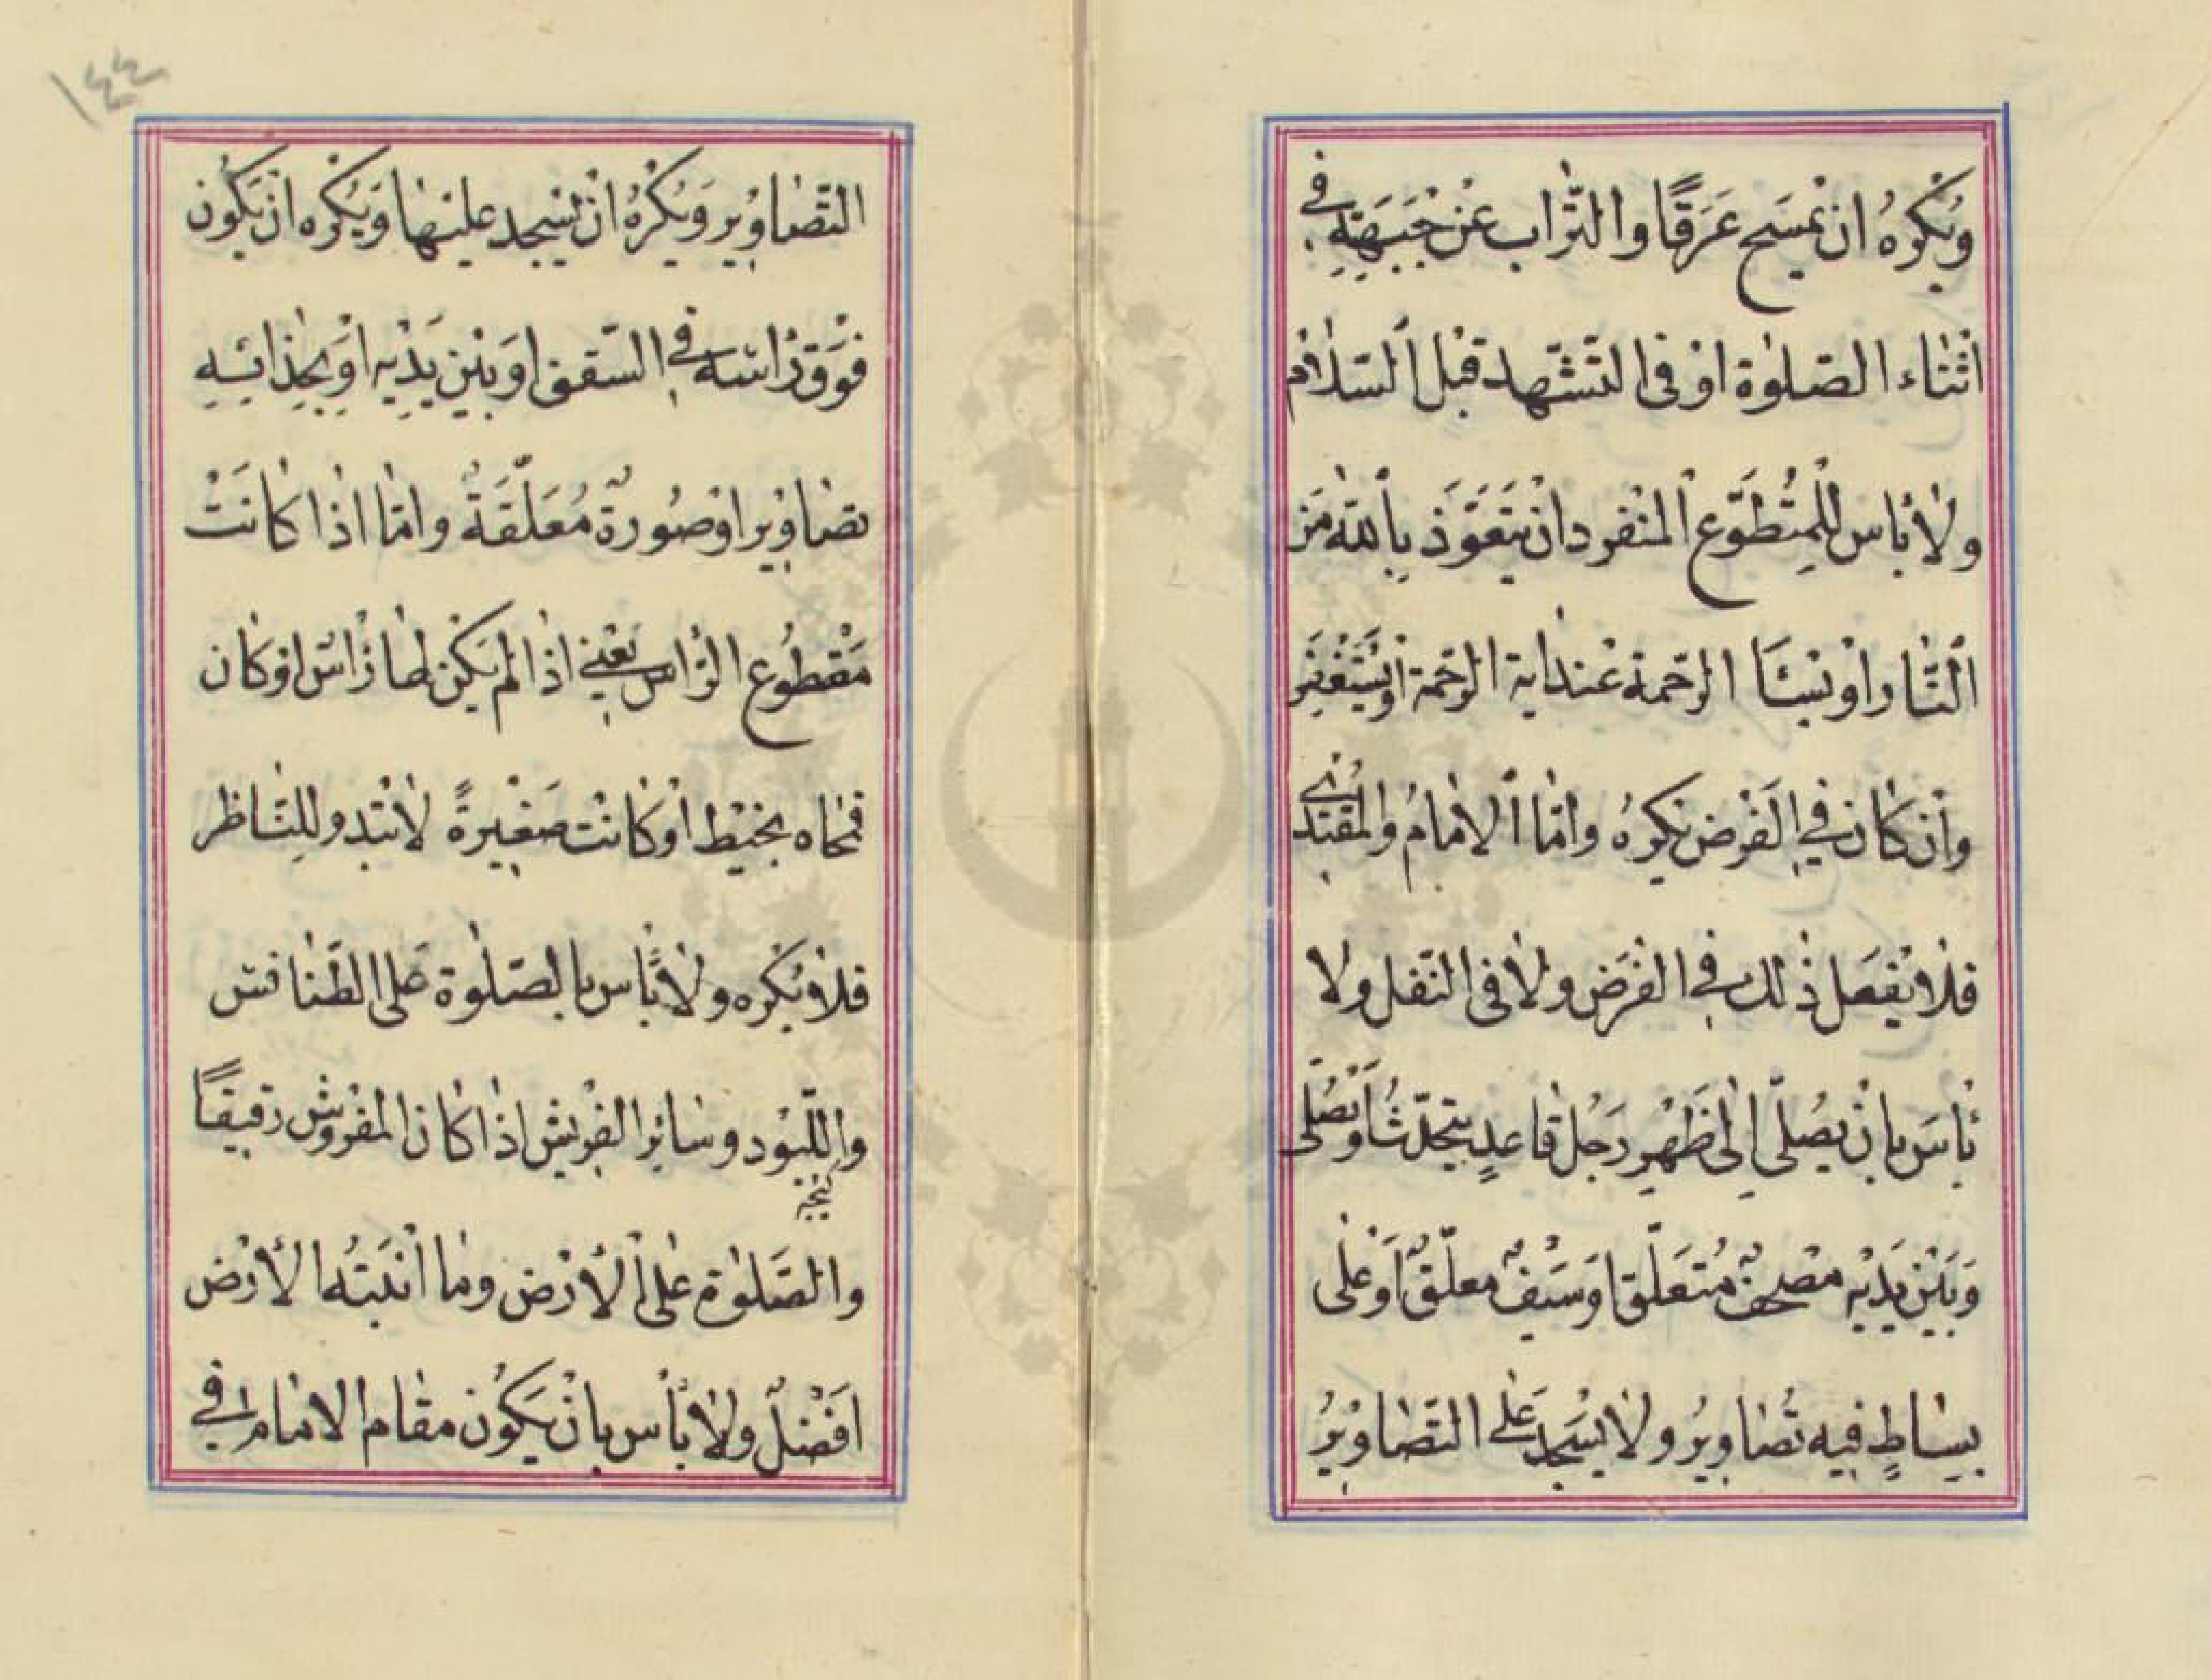 وَيُكْرَهُ اَنْ يَمْسَحَ عَرَقًا وَالتُّرَابَ عَنْ جَبْهَتِهِ فِي
اَثْنَاءِ الصَّلٰوةِ اَوْ فِي التَّشَهُّدِ قَبْلَ السَّلَامِ
وَلَا بَاْسَ لِلْمُتَطَوِّعِ الْمُنْفَرِدِ اَنْ يَتَعَوَّذَ بِاللّٰهِ مِنَ
النَّارِ اَوْ يَسْئَا الرَّحْمَةَ عِنْدَ اٰيَةِ الرَّحْمَةِ اَوْ يَسْتَغْفِرَ
وَاِنْ كَانَ فِي الْفَرْضِ يُكْرَهُ وَاَمَّا الْاِمَامُ وَالْمُقْتَدِى
فَلَا يَفْعَلُ ذٰلِكَ فِي الْفَرْضِ وَلَا فِي النَّفْلِ وَلَا
بَاْسَ بِاَنْ يُصَلِّىَ اِلٰى ظَهْرِ رَجُلٍ قَاعِدٍ يَتَحَدَّثُ اَوْ يُصَلِّى
وَبَيْنَ يَدَيْهِ مُصْحَفٌ مُتَعَلِّقٌ اَوْ سَيْفٌ مُعَلَّقٌ اَوْ عَلٰى
بِسَاطٍ فِيهِ تَصَاوِيرُ وَلَا يَسْجُدُ عَلَى التَّصَاوِيرُ
١٤٤
التَّصَاوِيرِ وَيُكْرَهُ اَنْ يَسْجُدَ عَلَيْهَا وَيُكْرَهُ اَنْ يَكُونَ
فَوْقَ رَاْسِهِ فِي السَّقْفِ اَوْ بَيْنَ يَدَيْهِ اَوْ بِحِذَائِهِ
تَصَاوِيرُ اَوْ صُورَةٌ مُعَلَّقَةٌ وَاَمَّا اِذَا كَانَتْ
مَقْطُوعَ الرَّاْسِ يَعْنِي اِذَا لَمْ يَكُنْ لَهَا رَاْسٌ اَوْ كَانَ
فَمَحَاهُ بِخَيْطٍ اَوْ كَانَتْ صَغِيرَةً لَا تَبْدُو لِلنَّاظِرِ
فَلَا يُكْرَهُ وَلَا بَاْسَ بِالصَّلٰوةِ عَلَى الطَّنَافِسِ
وَاللُّبُودِ وَسَائِرِ الْفُرُشِ اِذَا كَانَ الْمَفْرُوشُ رَقِيقًا
وَالصَّلٰوةُ عَلَى الْاَرْضِ وَمَا اَنْبَتَتْهُ الْاَرْضُ
اَفْضَلُ وَلَا بَاْسَ بِاَنْ يَكُونَ مَقَامُ الْاِمَامِ فِي